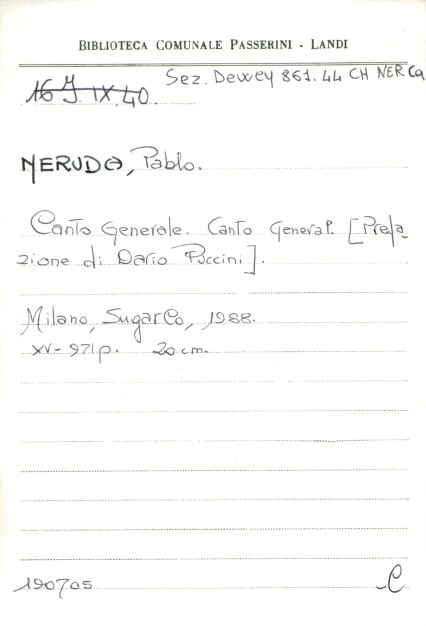 BIBLIOTECA COMUNALE PASSERINI - LANDI
Sez. Dewey 861.44 CH NER Ca
16 J. IX. 40.
NERUDA, Pablo.
Canto Generale. Canto General. [Prefa-
zione di Dario Puccini].
Milano, SugarCo, 1988.
XV- 971 p. 20 cm.
190705
C